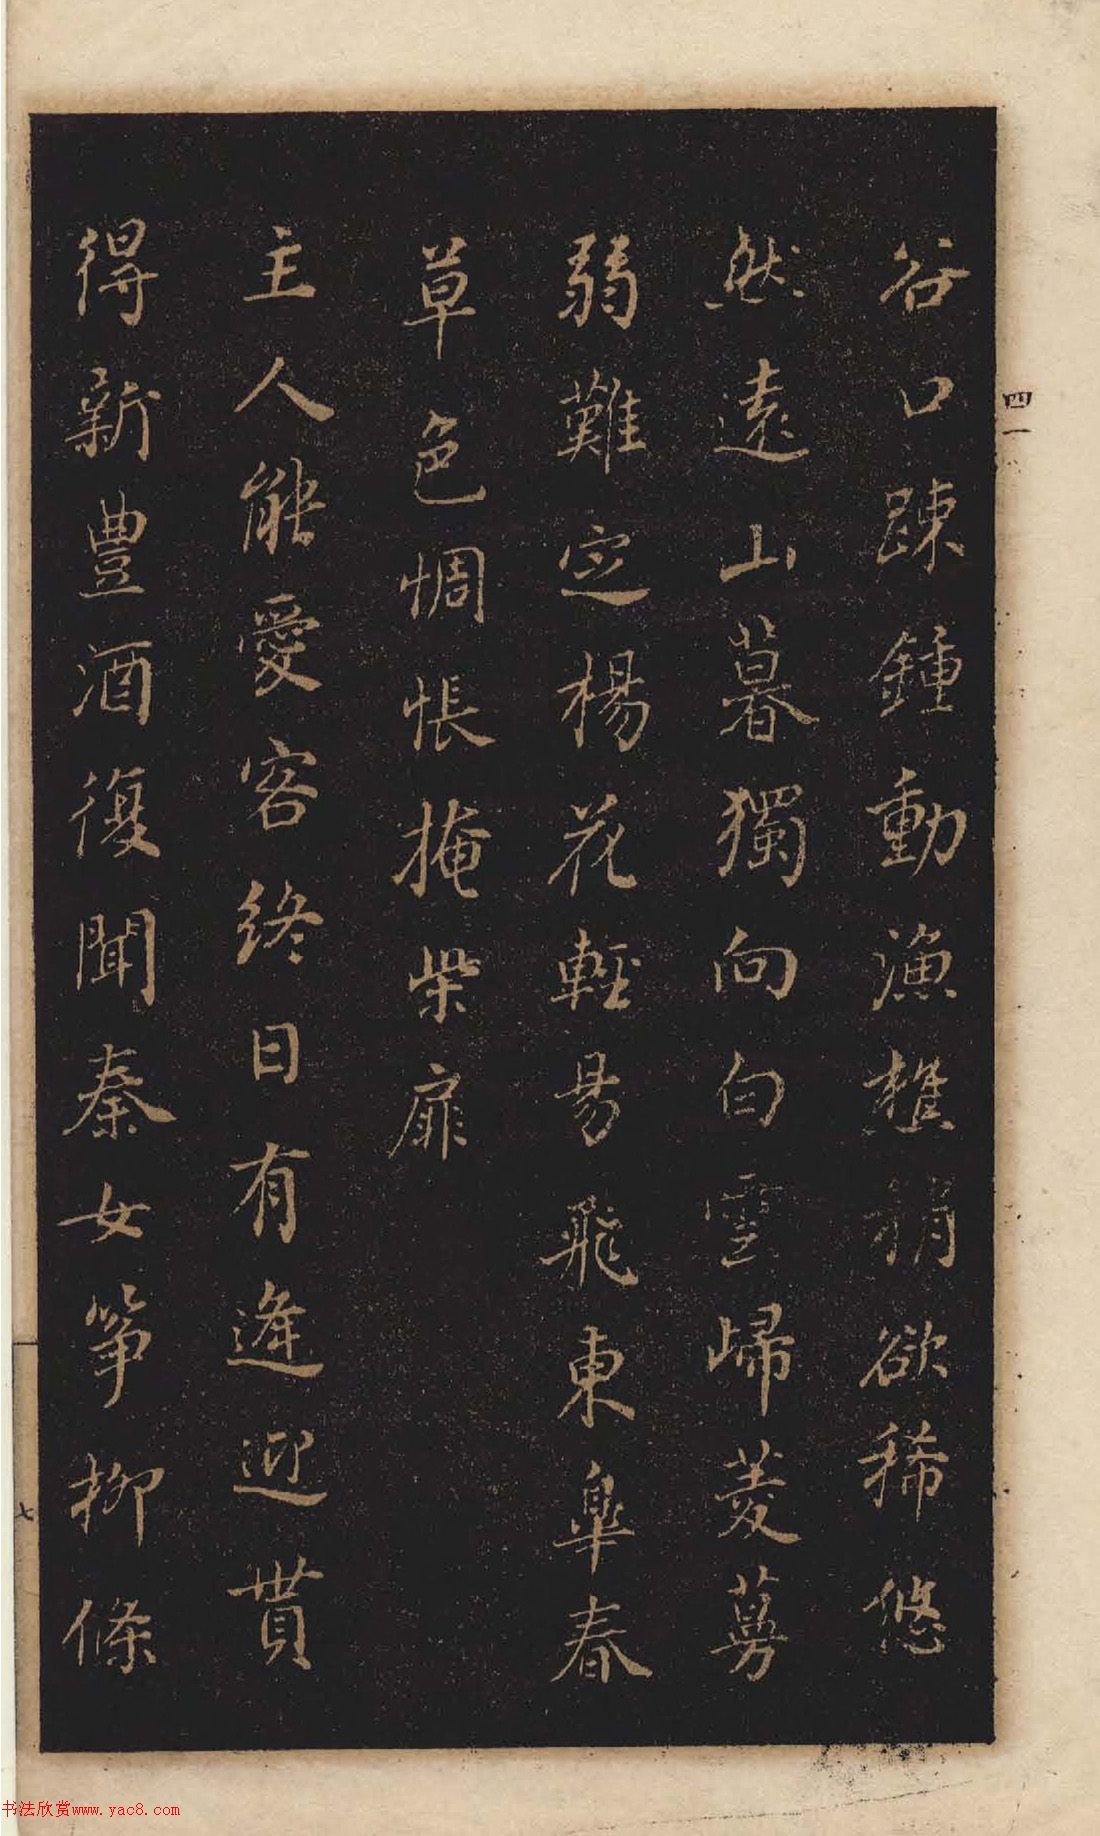 谷口踈鍾動漁樵稍欲稀悠
然遠山暮獨向白雲歸菱蔓
弱難定楊花輕易飛東臯春
草色惆悵掩柴扉
主人能愛客終日有逢迎貰
得新豊酒復聞秦女箏柳條
四一
七
书法欣赏www.yac8.com